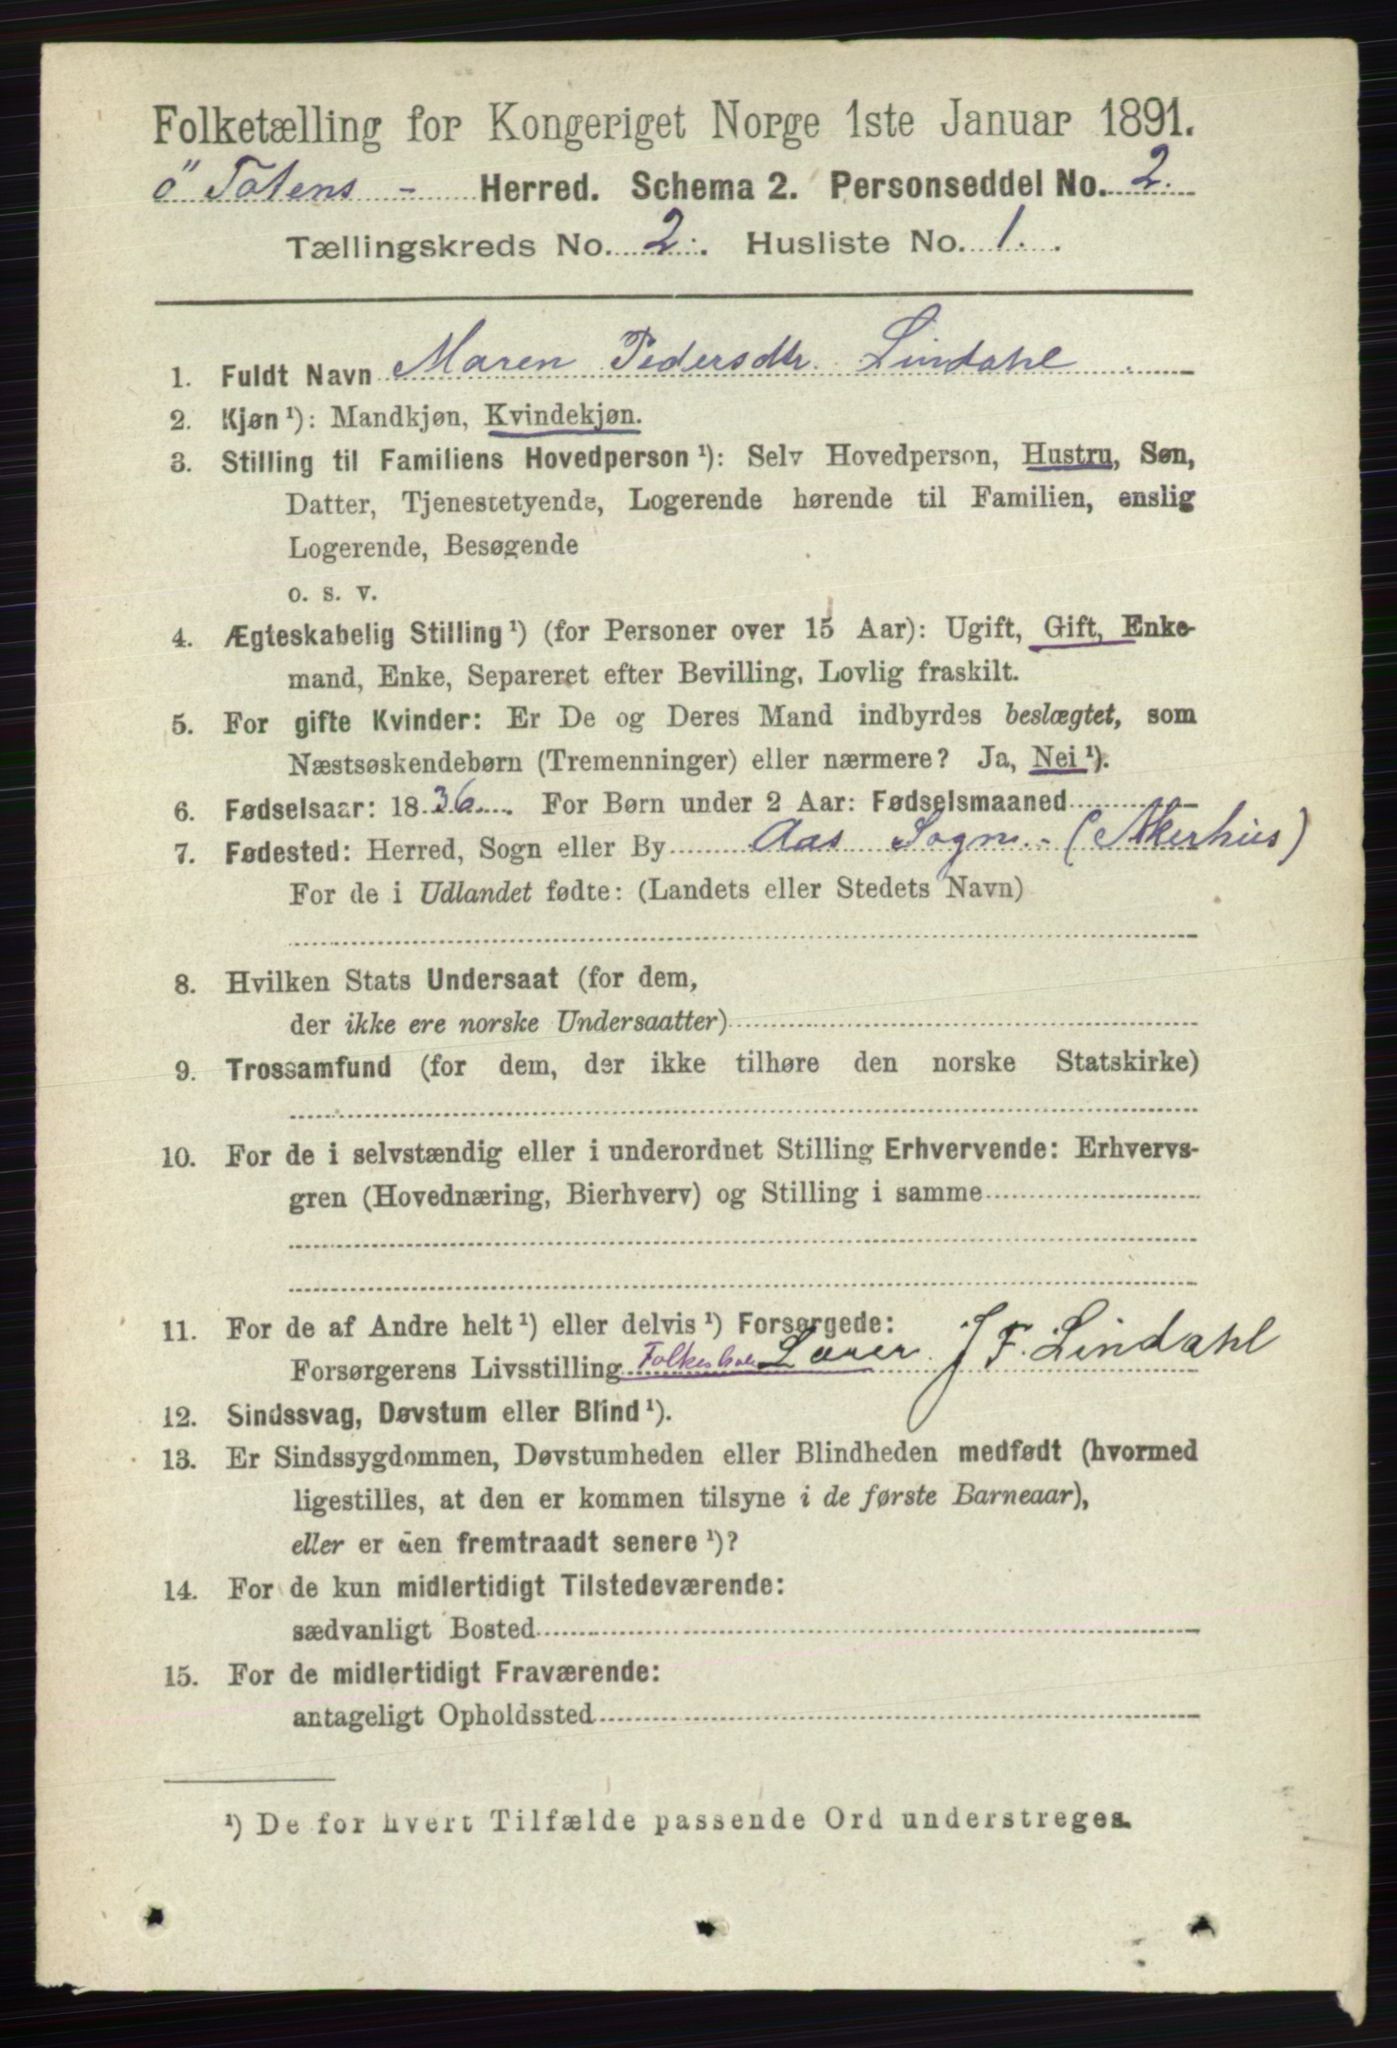 Folketælling for Kongeriget Norge 1ste Januar 1891.
Ö Totens - Herred. Schema 2. Personseddel No. 2.
Tællingskreds No. 2. Husliste No. 1.
1. Fuldt Navn Maren Pedersdtr. Lindahl
2. Kjøn¹): Mandkjøn, Kvindekjøn.
3. Stilling til Familiens Hovedperson¹): Selv Hovedperson, Hustru, Søn,
Datter, Tjenestetyende, Logerende hørende til Familien, enslig
Logerende, Besøgende
o. s. v.
4. Ægteskabelig Stilling¹) (for Personer over 15 Aar): Ugift, Gift, Enke-
mand, Enke, Separeret efter Bevilling, Lovlig fraskilt.
5. For gifte Kvinder: Er De og Deres Mand indbyrdes beslægtet, som
Næstsøskendebørn (Tremenninger) eller nærmere? Ja, Nei¹).
6. Fødselsaar: 1836. For Børn under 2 Aar: Fødselsmaaned
7. Fødested: Herred, Sogn eller By Aas Sogn. - (Akerhus)
For de i Udlandet fødte: (Landets eller Stedets Navn)
8. Hvilken Stats Undersaat (for dem,
der ikke ere norske Undersaatter)
9. Trossamfund (for dem, der ikke tilhøre den norske Statskirke)
10. For de i selvstændig eller i underordnet Stilling Erhvervende: Erhvervs-
gren (Hovednæring, Bierhverv) og Stilling i samme
11. For de af Andre helt¹) eller delvis¹) Forsørgede:
Forsørgerens Livsstilling Lærer J F. Lindahl
12. Sindssvag, Døvstum eller Blind¹).
13. Er Sindssygdommen, Døvstumheden eller Blindheden medfødt (hvormed
ligestilles, at den er kommen tilsyne i de første Barneaar),
eller er den fremtraadt senere¹)?
14. For de kun midlertidigt Tilstedeværende:
sædvanligt Bosted
15. For de midlertidigt Fraværende:
antageligt Opholdssted
¹) De for hvert Tilfælde passende Ord understreges.